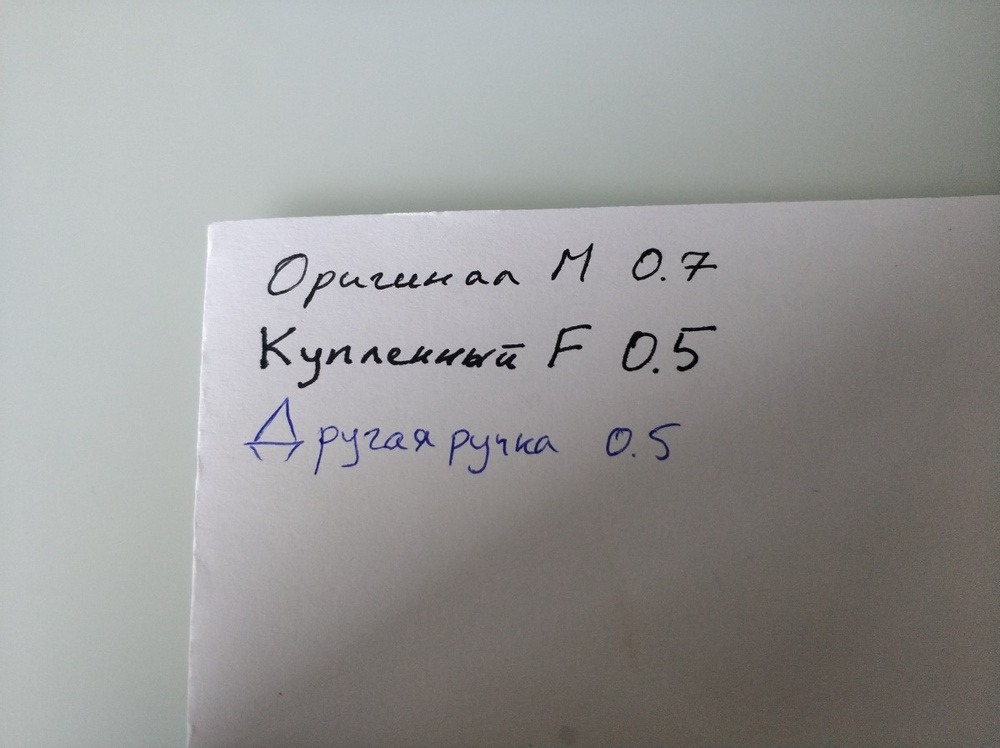 Оригинал М 0.7
Купленный F 0.5
Другая ручка 0.5